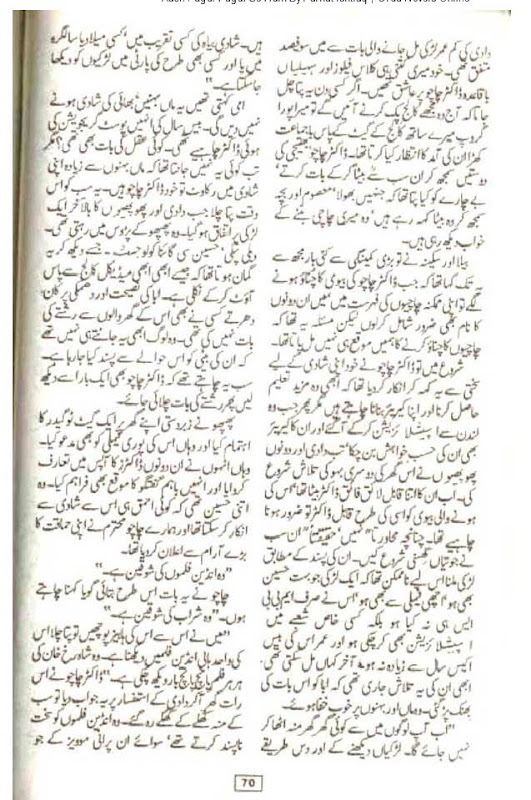 دادی کی کم عمر لڑکی مل جانے والی بات سے میں سو فیصد
متفق تھی۔ خود میری کتنی ہی کلاس فیلوز اور سہیلیاں
باقاعدہ ڈاکٹر چاچو پر عاشق تھیں۔ اگر کسی دن یہ پتا چل
جاتا کہ آج وہ مجھے کالج پک کرنے آئیں گے تو میرا پورا
گروپ میرے ساتھ کالج کے گیٹ کے پاس باجماعت
کھڑا ان کی آمد کا انتظار کیا کرتا تھا۔ ڈاکٹر چاچو بھتیجی کی
دوستیں سمجھ کر ان سب سے بیٹا کر کے بات کرتے
بے چارے کو کیا پتا تھا کہ جنہیں بھولا معصوم اور بچہ
سمجھ کر وہ بیٹا کہہ رہے ہیں وہ میری چاچی بننے کے
خواب دیکھ رہی ہیں۔
بیلا اور سکینہ نے تو بڑی کمینگی سے کئی بار مجھ سے
یہ تک کہا تھا کہ جب ڈاکٹر چاچو کی بیوی کا چناؤ ہونے
لگے تو اپنی ممکنہ چاچیوں کی فہرست میں میں ان دونوں
کا نام بھی ضرور شامل کر لوں لیکن مسئلہ یہ تھا کہ
چاچیوں کا چناؤ کرنے کا ہمیں موقع ہی نہیں مل پا تا تھا۔
شروع میں تو ڈاکٹر چاچو نے خود اپنی شادی کے لیے
سختی سے یہ کہہ کر انکار کر دیا تھا کہ ابھی وہ مزید تعلیم
حاصل کرنا اور اپنا کیریئر بنانا چاہتے ہیں مگر پھر جب وہ
لندن سے اسپیشلائزیشن کر کے آ گئے اور ان کا کیریئر
بھی ان کی حسب خواہش بن چکا تب دادی اور دونوں
پھوپھیوں نے اس گھر کی دوسری بہو کی تلاش شروع
کی۔ اب ان کا اتنا قابل لائق فائق ڈاکٹر بیٹا تھا اس کی
ہونے والی بیوی کو اسی کی طرح قابل ڈاکٹر تو ضرور ہونا
چاہیے تھا۔ چنانچہ محاورتاً نہیں حقیقتاً ان سب
نے جوتیاں گھسنی شروع کیں۔ ان کی پسند کے مطابق
لڑکی ملنا اس لیے ناممکن تھا کہ ایک لڑکی جو بہت حسین
بھی ہو اچھی فیملی سے بھی ہو اس نے صرف ایم بی بی
ایس ہی نہ کیا ہو بلکہ کسی خاص شعبے میں
اسپیشلائزیشن بھی کر چکی ہو اور عمر اس کی بیس
اکیس سال سے زیادہ نہ ہو وہ آخر کہاں مل سکتی تھی۔
ابھی ان کی یہ تلاش جاری تھی کہ ابا کو اس بات کی
بھنک پڑ گئی۔ وہ ماں اور بہنوں پر خوب خفا ہوئے۔
"اب آپ لوگوں میں سے کوئی گھر گھر منہ اٹھا کر
نہیں جائے گا۔ لڑکیاں دیکھنے کے اور دس طریقے
ہیں۔ شادی بیاہ کی کسی تقریب میں کسی میلاد یا سالگرہ
میں یا اور کسی بھی طرح کی پارٹی میں لڑکیوں کو دیکھا
جا سکتا ہے۔"
امی کہتی تھیں یہ ماں بہنیں بھائی کی شادی ہونے
نہیں دیں گی۔ بیس سال کی انہیں پوسٹ گریجویشن کی
ہوئی ڈاکٹر چاہیے تھی۔ کوئی عقل کی بات بھی تھی؟ مگر
تب کوئی یہ نہیں جانتا تھا کہ ماں بہنوں سے زیادہ اپنی
شادی میں رکاوٹ تو خود ڈاکٹر چاچو ہیں۔ یہ سب کو اس
وقت پتا چلا جب دادی اور پھوپھیوں کا بالآخر ایک
لڑکی پر اتفاق ہو گیا۔ وہ پھپھو کے پڑوس میں رہتی تھی۔
دبلی پتلی حسین سی گائناکولوجسٹ۔ جسے دیکھ کر یہ
گمان ہوتا تھا کہ جیسے ابھی ابھی میڈیکل کالج سے پاس
آؤٹ کر کے نکلی ہے۔ ابا کی نصیحت اور دھمکی پر کان
دھرتے کسی نے بھی اس کے گھر والوں سے رشتے کی
بات نہیں کی تھی۔ وہ لوگ ابھی یہ جانتے ہی نہیں تھے
کہ ان کی بیٹی کو اس حوالے سے پسند کیا جا رہا ہے۔
سب یہ چاہتے تھے کہ ڈاکٹر چاچو بھی ایک بار اسے دیکھ
لیں پھر رشتے کی بات چلائی جائے۔
پھپھو نے زبردستی اپنے گھر پر ایک گیٹ ٹو گیدر کا
اہتمام کیا اور وہاں اس کی پوری فیملی کو بھی مدعو کیا۔
وہاں انہوں نے ان دونوں ڈاکٹرز کا آپس میں تعارف
کروایا اور انہیں باہم گفتگو کا موقع بھی فراہم کیا۔ وہ
اتنی حسین تھی کہ کوئی احمق ہی اس سے شادی سے
انکار کر سکتا تھا اور ہمارے چاچو محترم نے اپنی حماقت کا
بڑے آرام سے اعلان کر دیا تھا۔
"وہ انڈین فلموں کی شوقین ہے۔"
چاچو نے یہ بات اس طرح بتائی گویا کہنا چاہتے
ہوں۔ "وہ شراب کی شوقین ہے۔"
"میں نے اس سے اس کی ہابیز پوچھیں تو پتا چلا اس
کی واحد ہابی انڈین فلمیں دیکھنا ہے۔ وہ شاہ رخ خان کی
ہر ہر فلم پانچ پانچ بار دیکھ چکی ہے۔" ڈاکٹر چاچو نے اس
رات گھر آ کر دادی کے استفسار پر یہ جواب دیا تو سب
کے منہ کھلے کے کھلے رہ گئے۔ وہ انڈین فلموں کو سخت
ناپسند کرتے تھے سوائے ان پرانی موویز کے جو
70